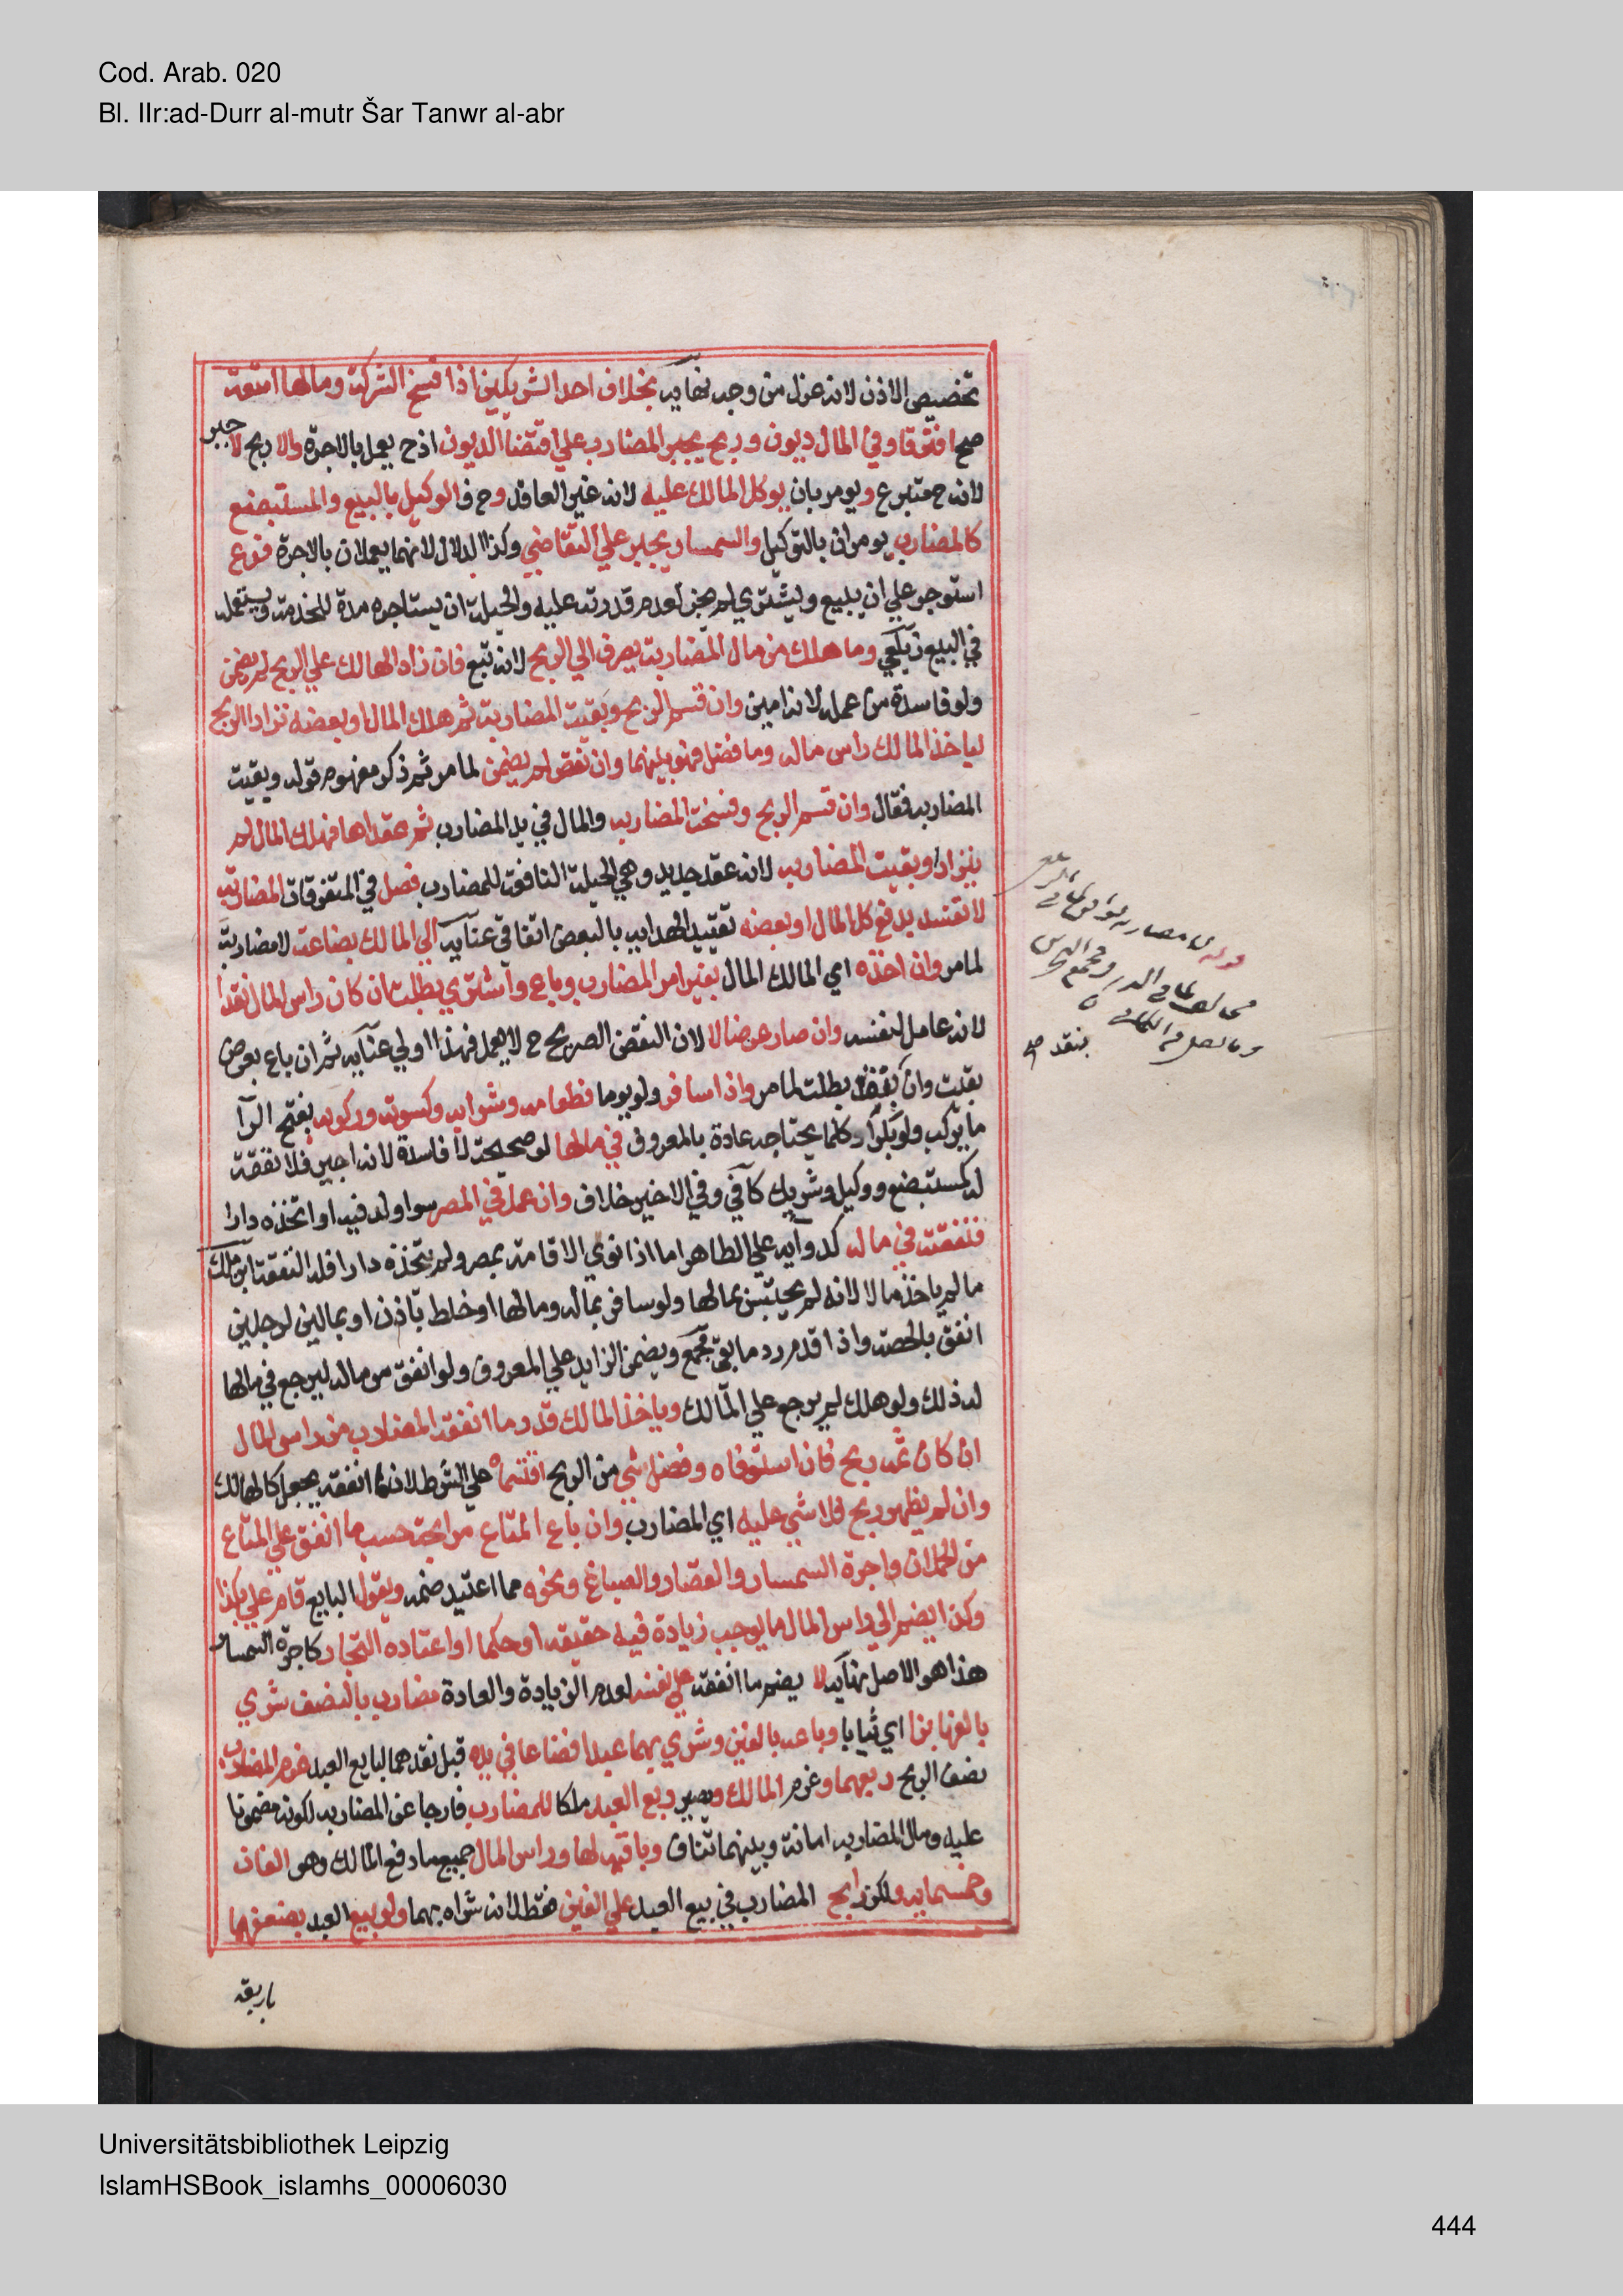 Cod. Arab. 020
Bl. IIr:ad-Durr al-mutr Šar Tanwr al-abr
تخصيص الاذن لانه عزل من وجه نهايه بخلاف احد الشريكين اذا فسخ الشركة ومالها امتعة
صح افترقا وفي المال ديون وربح يجبر المضارب علي اقتضا الديون اذ ح يعمل بالاجرة والا ربح لا جبر
لانه ح متبرع ويومر بان يوكل المالك عليه لانه غير العاقد وح فالوكيل بالبيع والمستبضع
كالمضارب يومران بالتوكيل والسمسار يجبر علي التقاضي وكذا الدلال لانهما يعملان بالاجرة فرع
استوجر علي ان يبيع ويشتري لم يجز لعدم قدرته عليه والحيلة ان يستاجره مدة للخدمة ويستعمله
في البيع زيلعي وما هلك من مال المضاربة يصرف الي الربح لانه تبع فان زاد الهالك علي الربح لم يضمن
ولو فاسدة من عمله لانه امين وان قسم الربح وبقيت المضاربة ثم هلك المال او بعضه ترادا الربح
لياخذ المالك راس ماله وما فضل فهو بينهما وان نقص لم يضمن لما مر ثم ذكر مفهوم قوله وبقيت
المضاربه فقال وان قسم الربح وفسخت المضاربه والمال في يد المضارب ثم عقداها فهلك المال لم
يترادا وبقيت المضاربه لانه عقد جديد وهي الحيلة النافعة للمضارب فصل في المتفرقات المضاربه
لا تفسد بدفع كل المال او بعضه تقييد الهدايه بالبعض اتفاقي عنايه الي المالك بضاعة لا مضاربة
لما مر وان اخذه اي المالك المال بغير امر المضارب وباع واشتري بطلت ان كان راس المال نقدا
لانه عامل لنفسه وان صار عرضا لا لان النقض الصريح ح لا يعمل فهذا اولي عنايه ثم ان باع بعرض
بقيت وان بنقد بطلت لما مر واذا سافر ولو يوما فطعامه وشرابه وكسوته وركوبه بفتح الرآ
ما يركب ولو بكرا وكلما يحتاجه عادة بالمعروف في مالها لو صحيحة لا فاسدة لانه اجير فلا نفقة
له كمستبضع ووكيل وشريك كافي وفي الاخير خلاف وان عمل في المصر سوا ولد فيه او اتخذه دارا
فنفقته في ماله كدوايه علي الظاهر اما اذا نوي الاقامة بمصر ولم يتخذه دارا فله النفقة ابن ملك
ما لم ياخذ مالا لانه لم يحتبس بمالها ولو سافر بماله ومالها او خلط باذن او بمالين لرجلين
انفق بالحصة واذا قدم رد ما بقي مجمع ويضمن الزايد علي المعروف ولو انفق من ماله ليرجع في مالها
له ذلك ولو هلك لم يرجع علي المالك وياخذ المالك قدر ما انفقه المضارب من راس المال
ان كان ثمه ربح فان استوفاه وفضل شي من الربح اقتسماه علي الشرط لان ما انفقه يجعل كالهالك
وان لم يظهر ربح فلا شي عليه اي المضارب وان باع المتاع مرابحة حسب ما انفق علي المتاع
من الحملان واجرة السمسار والقصار والصباغ ونحوه مما اعتيد ضمه ويقول البايع قام علي بكذا
وكذا يضم الي راس المال ما يوجب زيادة فيه حقيقه او حكما او اعتاده التجار كاجرة السمسار
هذا هو الاصل نهايه لا يضم ما انفقه علي نفسه لعدم الزيادة والعادة مضارب بالنصف شري
بالفها بزا اي ثيابا وباعه بالفين وشري بهما عبدا فضاعا في يده قبل نقدهما لبايع العبد غرم المضارب
نصف الربح ربعهما وغرم المالك ويصير ربع العبد ملكا للمضارب خارجا عن المضاربه لكونه مضمونا
عليه ومال المضاربه امانة وبينهما تناف وباقيه لها وراس المال جميع ما دفع المالك وهو الفان
وخمسمايه ولكن رابح المضارب في بيع العبد علي الفين فقط لانه شراه بهما ولو بيع العبد بضعفهما
باربعة
Universitätsbibliothek Leipzig
IslamHSBook_islamhs_00006030
444